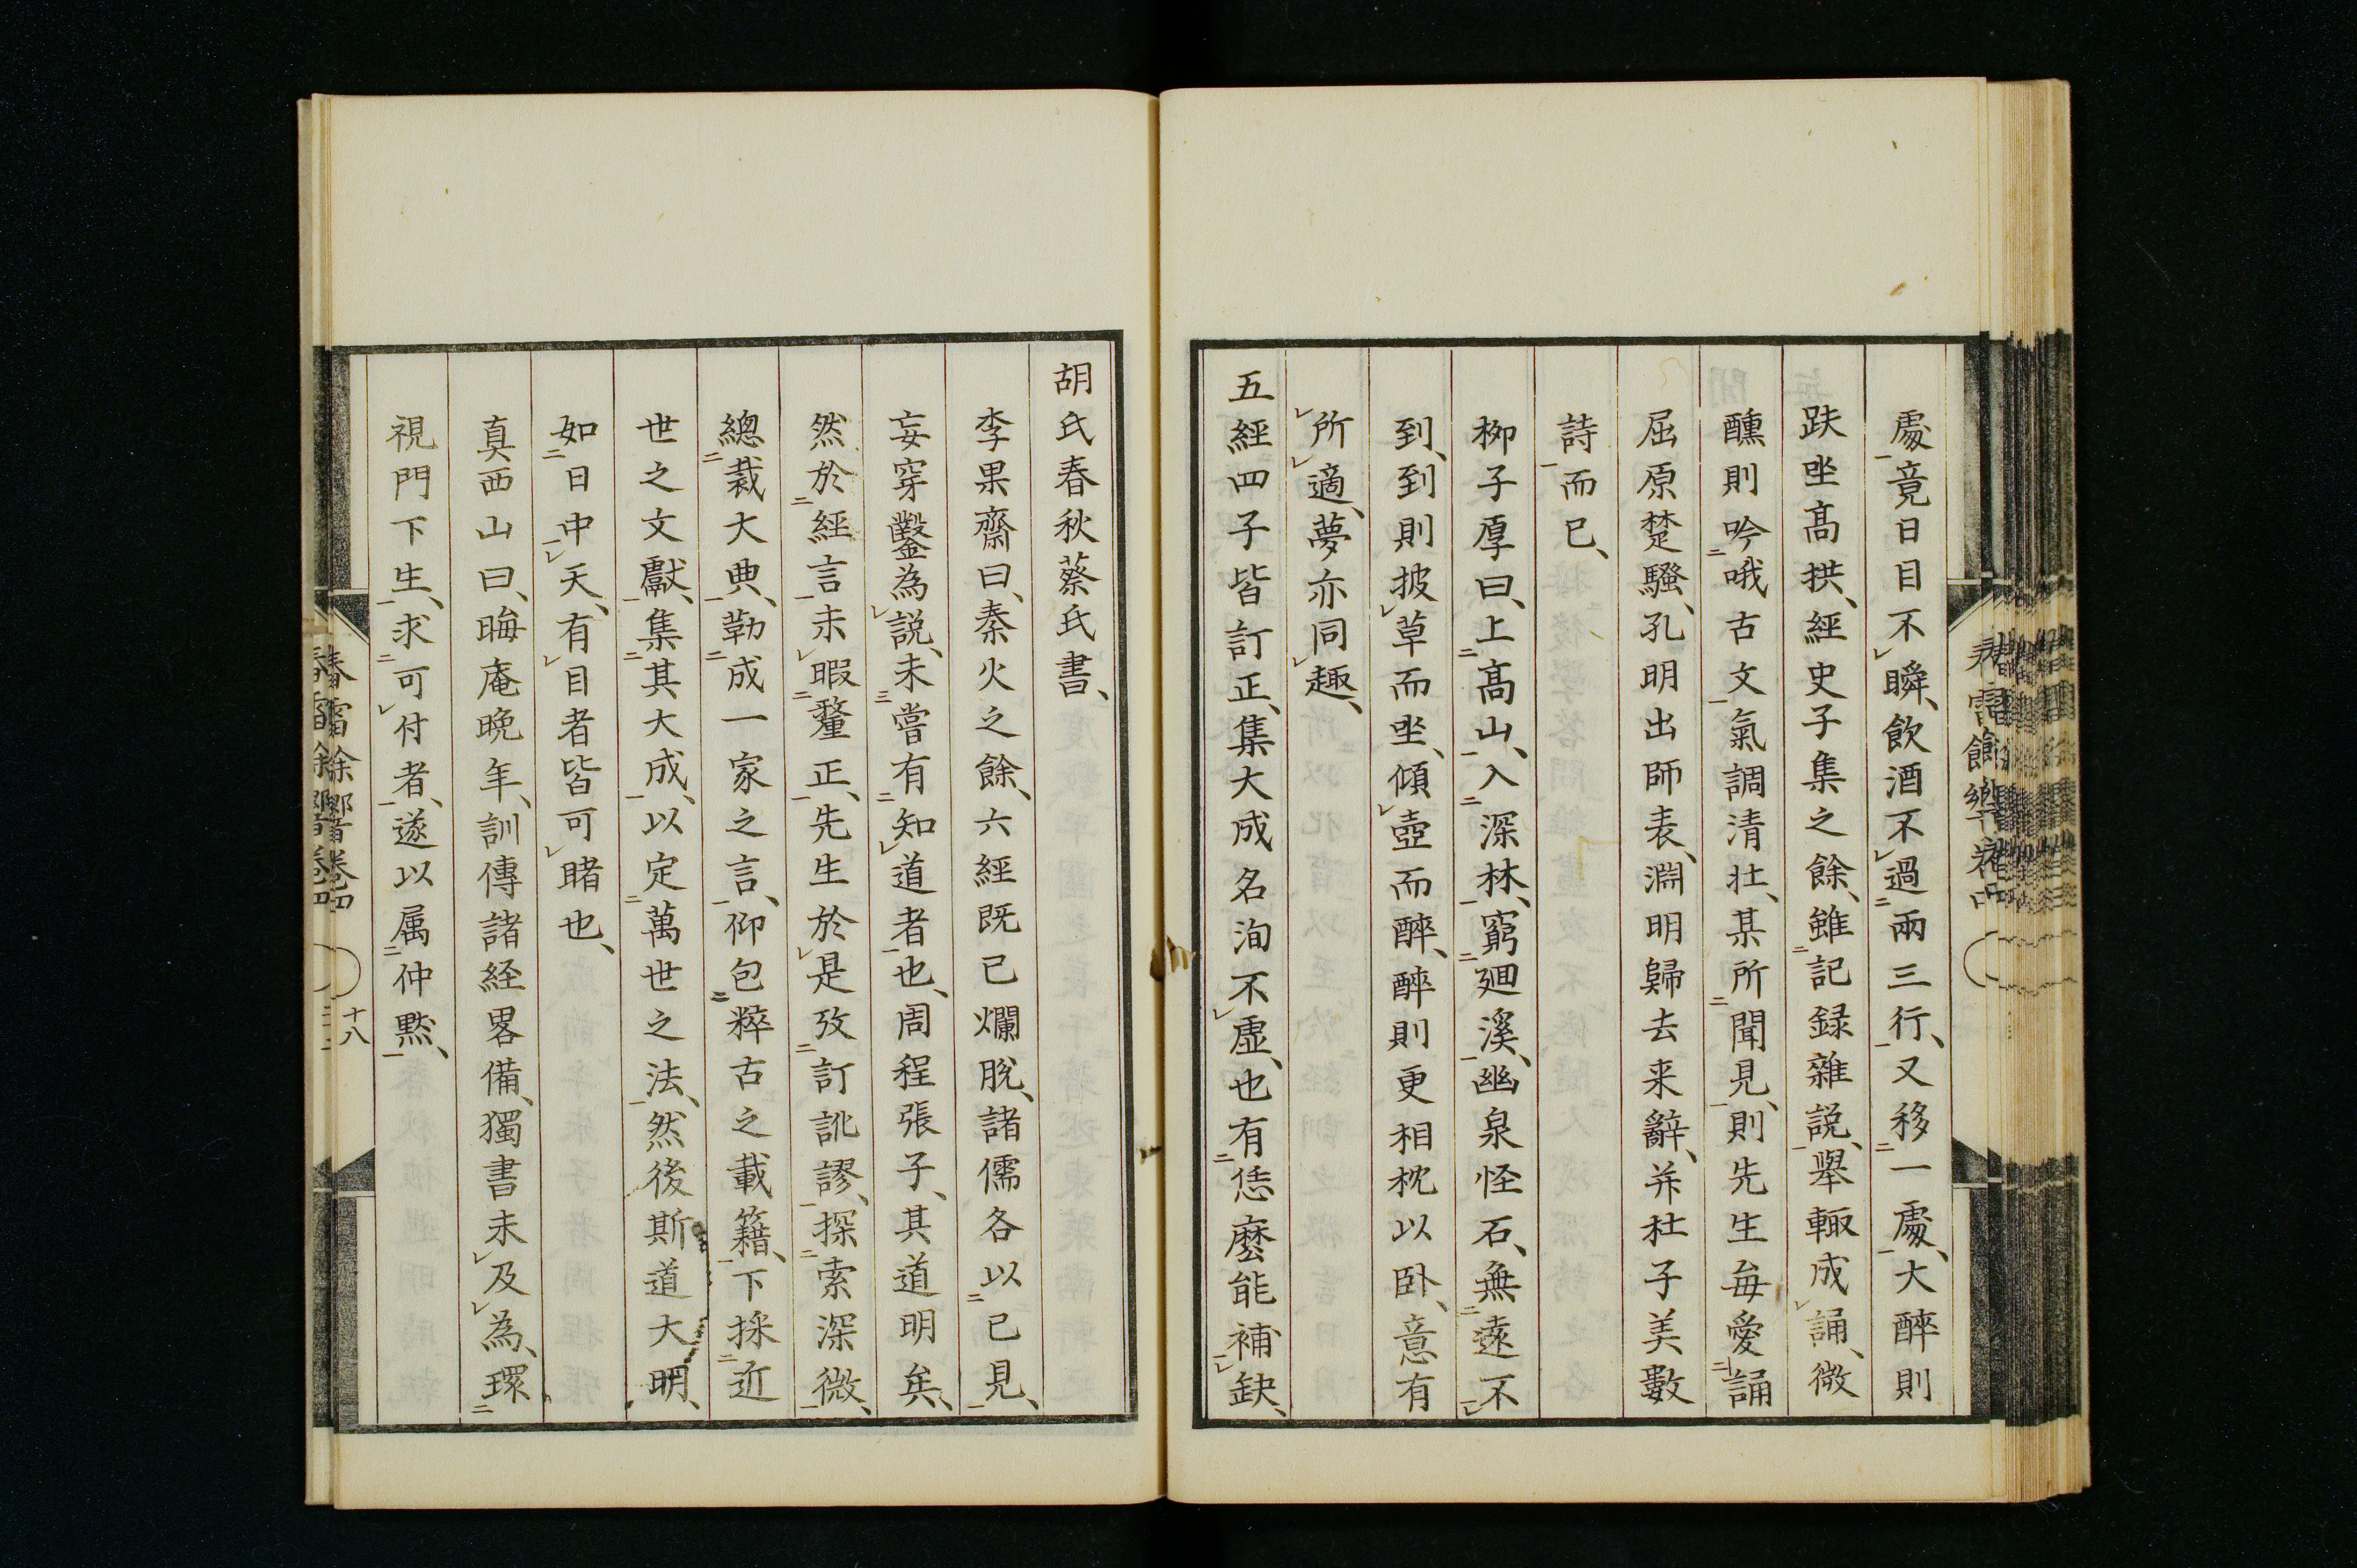 處竟日目不瞬、飲酒不過兩三行、又移一處、大醉則
趺坐高拱、經史子集之餘、雖記録雜説、舉輙成誦、微
醺則吟哦古文氣調清壮、某所聞見、則先生毎愛誦
屈原楚騷、孔明出師表、淵明歸去来辭、并杜子美數
詩而已、
柳子厚曰、上高山、入深林、窮廻溪、幽泉怪石、無遠不
到、到則披草而坐、傾壺而醉、醉則更相枕以卧、意有
所適、夢亦同趣、
五經四子皆訂正、集大成名洵不虛、也有恁麼能補缺、
胡氏春秋蔡氏書、
李果齋曰、秦火之餘、六經既已爛脱、諸儒各以己見、
妄穿鑿為説、未嘗有知道者也、周程張子、其道明矣、
然於經言未暇釐正、先生於是攷訂訛謬、探索深微、
總裁大典、勒成一家之言、仰包粹古之載籍、下採近
世之文獻、集其大成、以定萬世之法、然後斯道大明、
如日中天、有目者皆可睹也、
真西山曰、晦庵晩年、訓傳諸経畧備、獨書未及為、環
視門下生、求可付者、遂以属仲黙、
十八